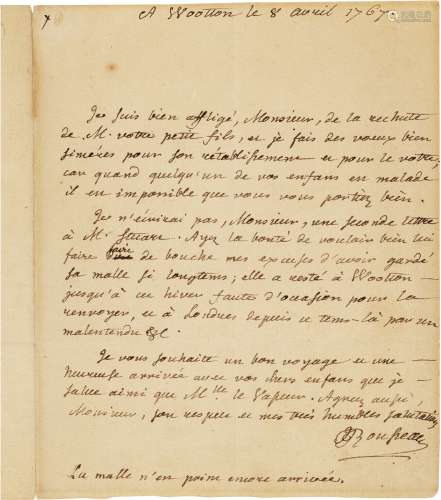 A Wootton le 8 avril 1767
Je suis bien affligé, Monsieur, de la rechute
de M. votre petit fils, et je fais des voeux bien
sincéres pour son rétablissement et pour le votre,
car quand quelqu'un de vos enfans est malade
il est impossible que vous vous portiez bien.
Je n'écrirai pas, Monsieur, une seconde lettre
à M. Stuart. Ayez la bonté de vouloir bien lui
faire
faire de bouche mes excuses d'avoir gardé
sa malle si longtems; elle a resté à Wootton
jusqu'à cet hiver faute d'occasion pour la
renvoyer, et à Londres depuis ce tems-là par un
malentendu &c.
Je vous souhaite un bon voyage et une
heureuse arrivée avec vos chers enfans que je
salue ainsi que Mlle le Vasseur. Agréez aussi,
Monsieur, son respect et mes très humbles salutations
JJRousseau
La malle n'est point encore arrivée.